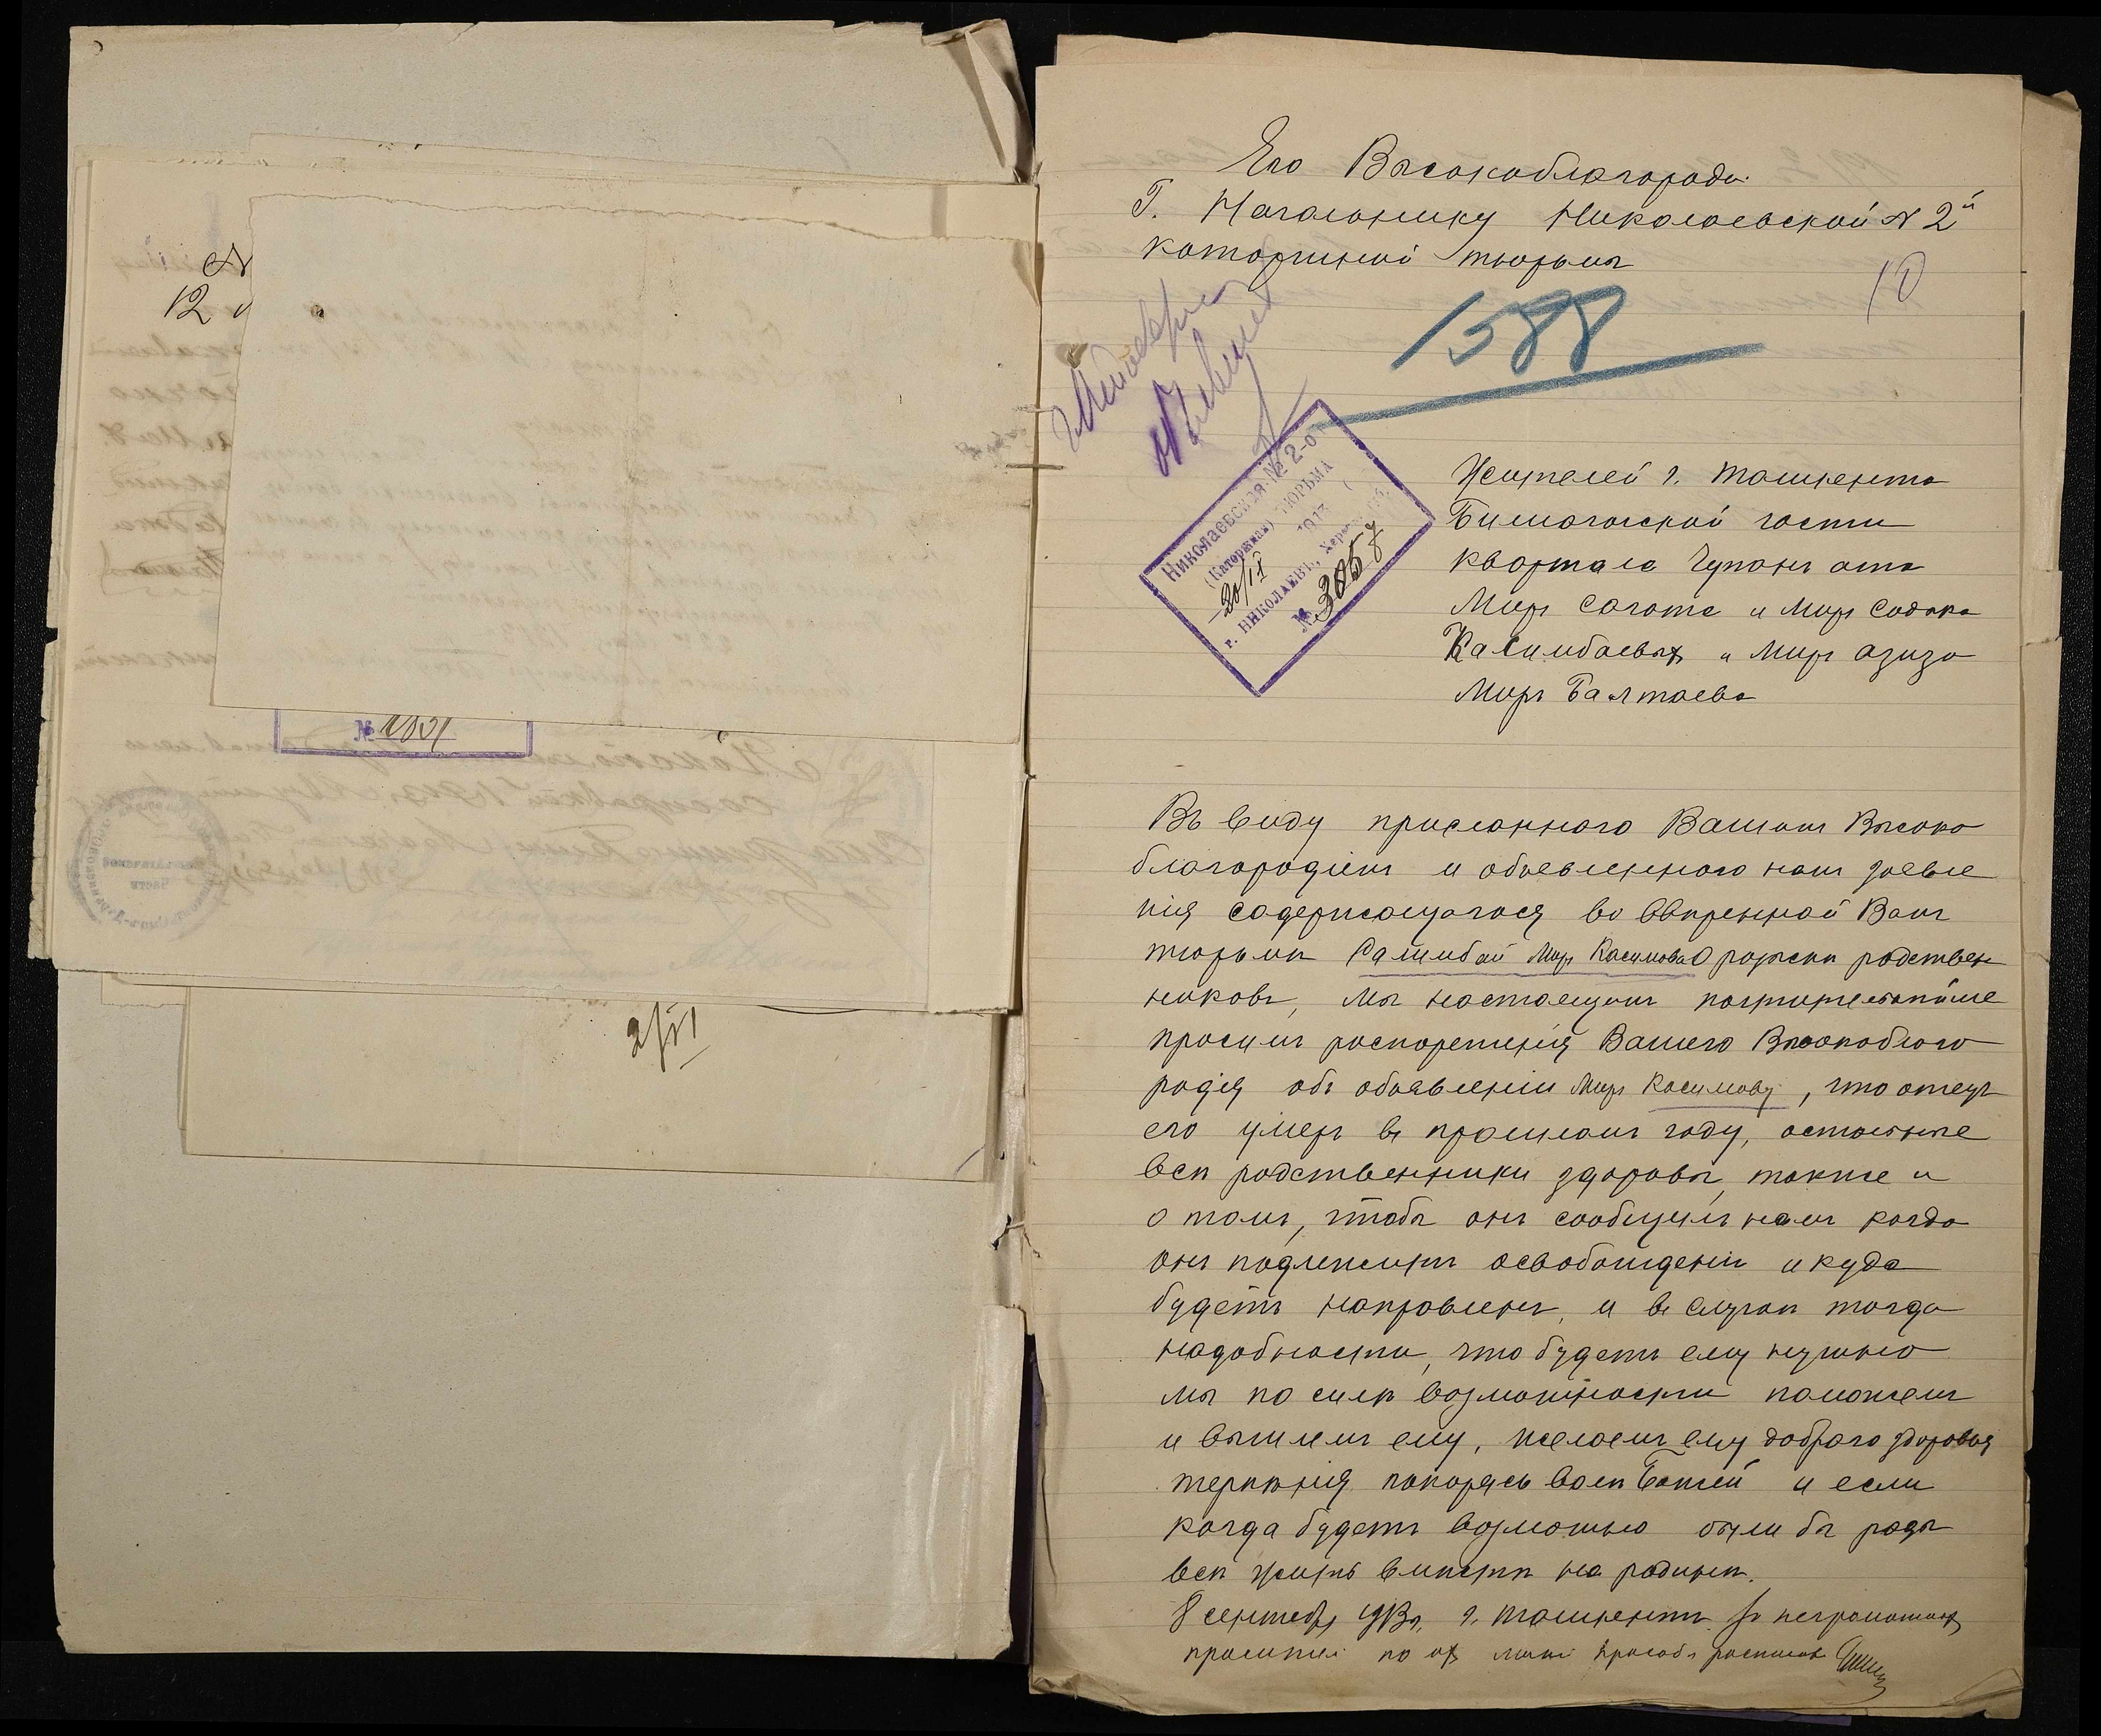 №
12
№ 1831
2/VI
Его Высокоблагороди
Г. Начальнику Николаевской № 2й
каторжной тюрьмы
10
1588
Николаевская № 2-о
(Каторжная) ТЮРЬМА
20/IX 1913
г. НИКОЛАЕВЪ, Херс
№ 3057
Жителей г. Ташкента
Бишагачской части
квартала Чупанъ ата
Миръ Сагата и Миръ Садыка
Касимбаевыхъ и Миръ Азиза
Миръ Балтаева
Въ виду присланного Вашимъ Высоко
благородіемъ и объевленного намъ заевле
нія содержащагося во ввѣренной Вамъ
тюрьмѣ Салимбай Миръ Касимова о розыскѣ родствен
никовъ, мы настаещимъ почтительнѣйше
просимъ распореженія Вашего Высокоблаго
родія объ объявленіи Миръ Касимову, что отецъ
его умеръ въ прошломъ году, остальные
всѣ родственники здоровы, также и
о томъ, чтобы онъ сообщилъ намъ когда
онъ подлежитъ освобожденію и куда
будетъ направленъ, и въ случаѣ тогда
надобности, что будетъ ему нужно
мы по силѣ возможности поможемъ
и вышлемъ ему, желаемъ ему добраго здоровья
терпѣнія покорясь волѣ Божией и если
когда будетъ возможно были бы рады
всѣ жить вмѣстѣ на родинѣ.
8 сентября 1913 г. г. Ташкентъ за неграмотныхъ
просителей по ихъ личной просьбѣ росписался